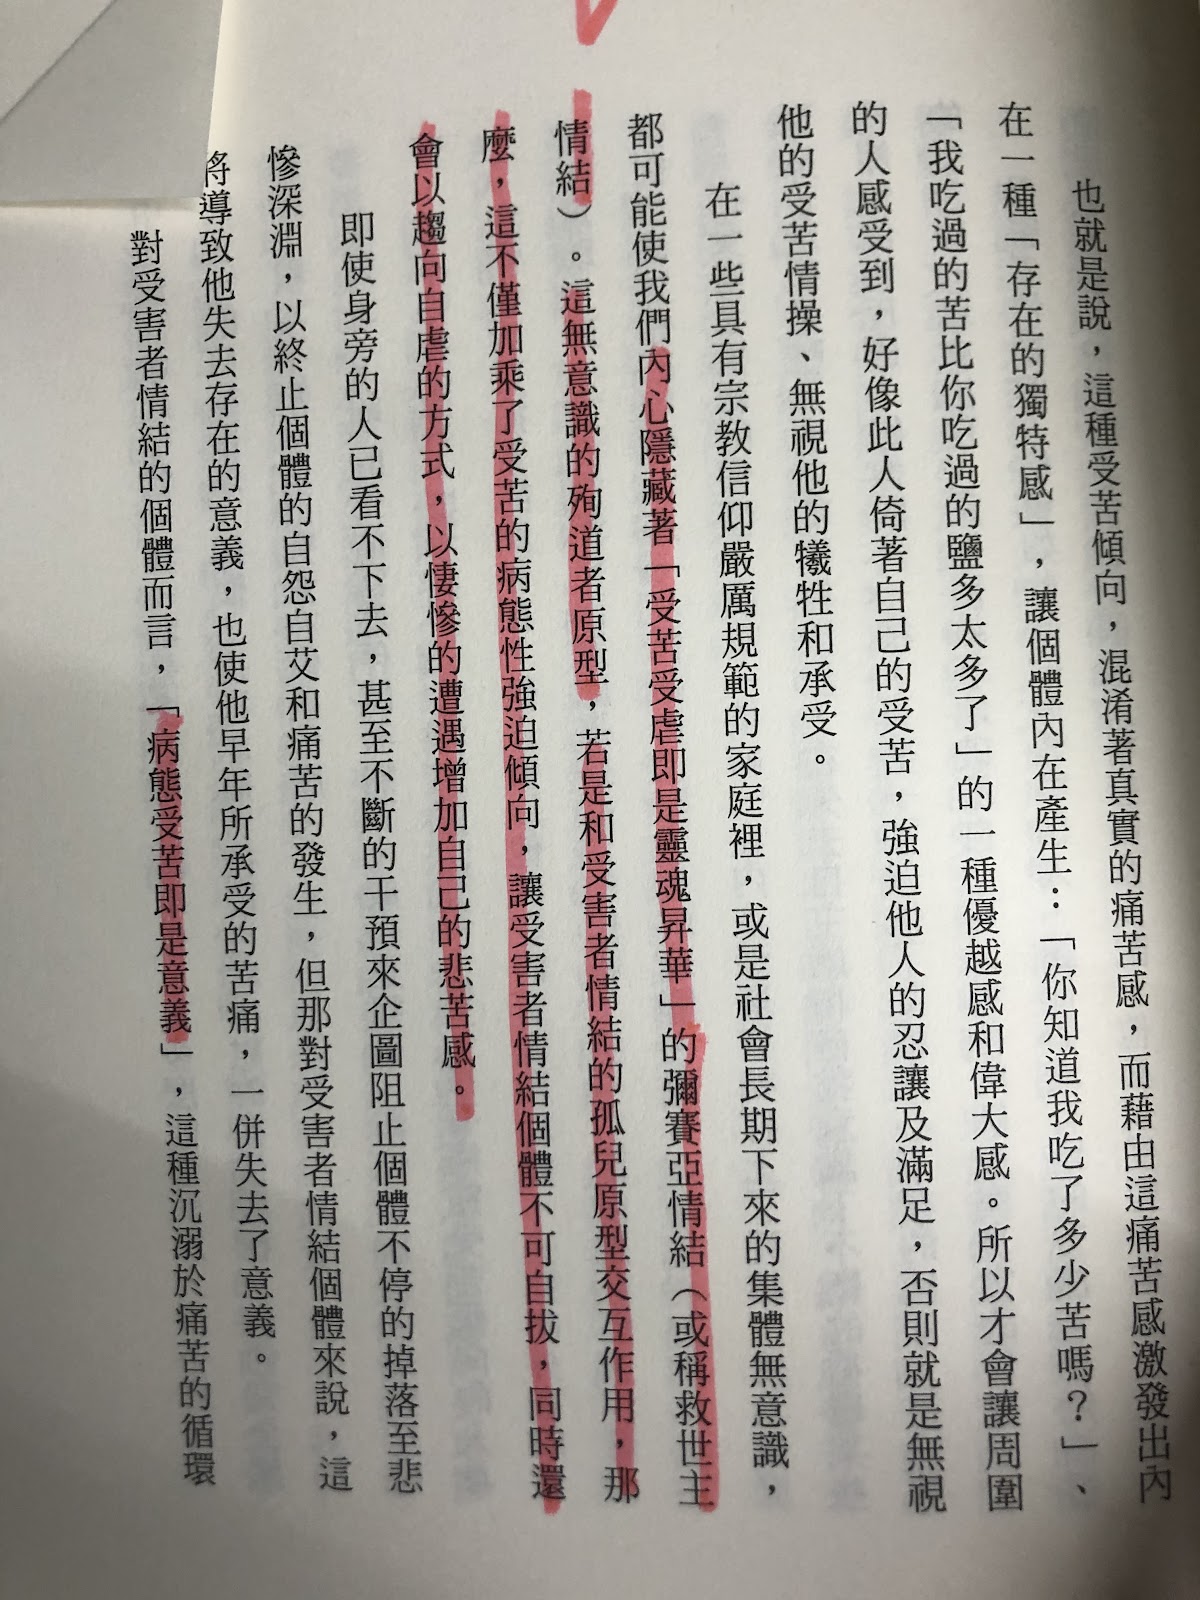 也就是說，這種受苦傾向，混淆著真實的痛苦感，而藉由這痛苦感激發出內
在一種「存在的獨特感」，讓個體內在產生：「你知道我吃了多少苦嗎？」、
「我吃過的苦比你吃過的鹽多太多了」的一種優越感和偉大感。所以才會讓周圍
的人感受到，好像此人倚著自己的受苦，強迫他人的忍讓及滿足，否則就是無視
他的受苦情操、無視他的犧牲和承受。
在一些具有宗教信仰嚴厲規範的家庭裡，或是社會長期下來的集體無意識，
都可能使我們內心隱藏著「受苦受虐即是靈魂昇華」的彌賽亞情結（或稱救世主
情結）。這無意識的殉道者原型，若是和受害者情結的孤兒原型交互作用，那
麼，這不僅加乘了受苦的病態性強迫傾向，讓受害者情結個體不可自拔，同時還
會以趨向自虐的方式，以悽慘的遭遇增加自己的悲苦感。
即使身旁的人已看不下去，甚至不斷的干預來企圖阻止個體不停的掉落至悲
慘深淵，以終止個體的自怨自艾和痛苦的發生，但那對受害者情結個體來說，這
將導致他失去存在的意義，也使他早年所承受的苦痛，一併失去了意義。
對受害者情結的個體而言，「病態受苦即是意義」，這種沉溺於痛苦的循環